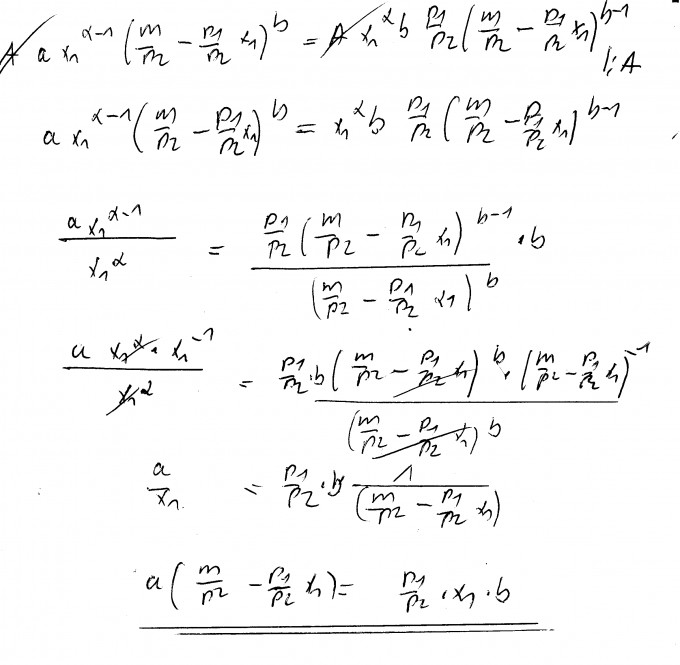 A a x₁^(α-1) (m/p₂ - p₁/p₂ x₁)^b = A x₁^α b p₁/p₂ (m/p₂ - p₁/p₂ x₁)^(b-1)
|:A
a x₁^(α-1) (m/p₂ - p₁/p₂ x₁)^b = x₁^α b p₁/p₂ (m/p₂ - p₁/p₂ x₁)^(b-1)
(a x₁^(α-1)) / (x₁^α) = (p₁/p₂ (m/p₂ - p₁/p₂ x₁)^(b-1) · b) / ((m/p₂ - p₁/p₂ x₁)^b)
(a x₁^α · x₁^(-1)) / (x₁^α) = (p₁/p₂ · b (m/p₂ - p₁/p₂ x₁)^b · (m/p₂ - p₁/p₂ x₁)^(-1)) / ((m/p₂ - p₁/p₂ x₁)^b)
a/x₁ = p₁/p₂ · b · 1/((m/p₂ - p₁/p₂ x₁))
a (m/p₂ - p₁/p₂ x₁) = p₁/p₂ · x₁ · b